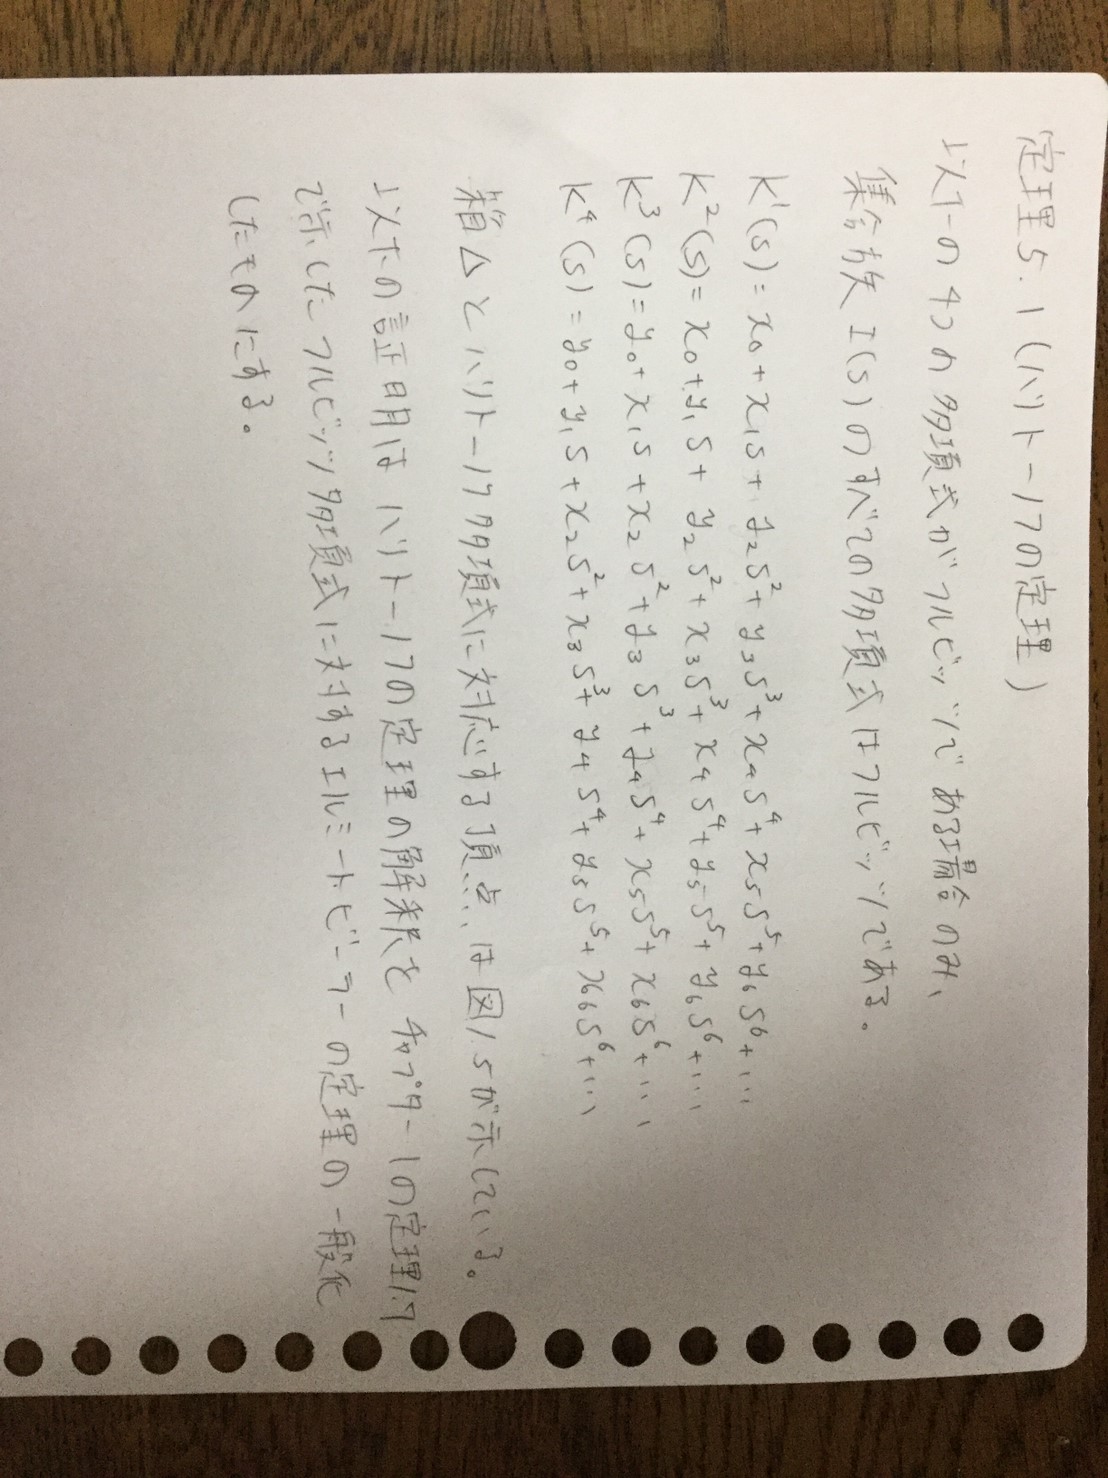 定理5.1(ハリトーノフの定理)
以下の4つの多項式がフルビッツである場合のみ、
集合族I(s)のすべての多項式はフルビッツである。
K¹(s)=x₀+x₁s+y₂s²+y₃s³+x₄s⁴+x₅s⁵+y₆s⁶+...
K²(s)=x₀+y₁s+y₂s²+x₃s³+x₄s⁴+y₅s⁵+y₆s⁶+...
K³(s)=y₀+x₁s+x₂s²+y₃s³+y₄s⁴+x₅s⁵+x₆s⁶+...
K⁴(s)=y₀+y₁s+x₂s²+x₃s³+y₄s⁴+y₅s⁵+x₆s⁶+...
箱△とハリトーノフ多項式に対応する頂点、は図1.5が示している。
以下の証明はハリトーノフの定理の解釈をチャプター1の定理1.7
で示したフルビッツ多項式に対するエルミート・ビーラーの定理の一般化
したものにする。